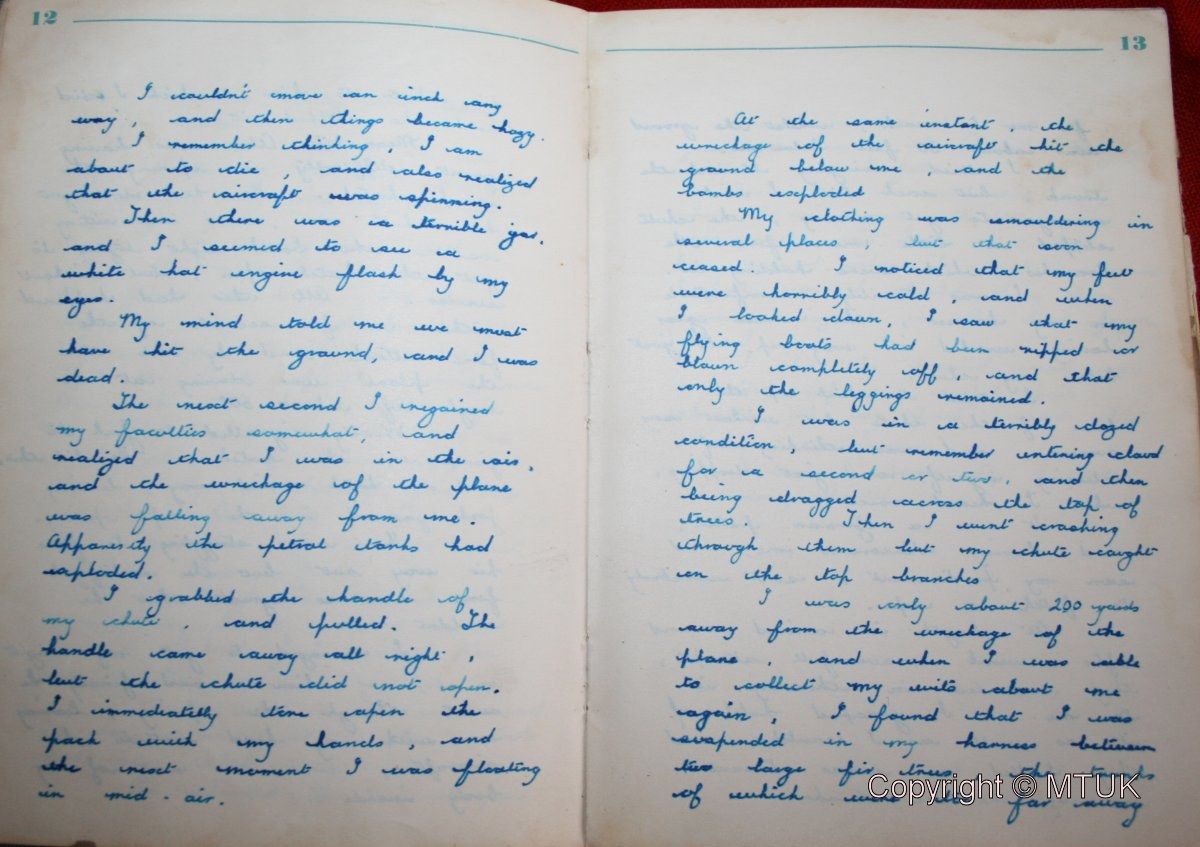 12
I couldn't move an inch any
way, and then things became hazy.
I remember thinking, I am
about to die, and also realized
that the aircraft was spinning.
Then there was a terrible jar,
and I seemed to see a
white hot engine flash by my
eyes.
My mind told me we must
have hit the ground, and I was
dead.
The next second I regained
my faculties somewhat, and
realized that I was in the air,
and the wreckage of the plane
was falling away from me.
Apparently the petrol tanks had
exploded.
I grabbed the handle of
my chute, and pulled. The
handle came away all right,
but the chute did not open.
I immediately tore open the
pack with my hands, and
the next moment I was floating
in mid-air.
13
At the same instant, the
wreckage of the aircraft hit the
ground below me, and the
bombs exploded
My clothing was smouldering in
several places, but that soon
ceased. I noticed that my feet
were horribly cold, and when
I looked down, I saw that my
flying boots had been ripped or
blown completely off, and that
only the leggings remained.
I was in a terribly dazed
condition, but remember entering cloud
for a second or two, and then
being dragged across the top of
trees. Then I went crashing
through them but my chute caught
on the top branches
I was only about 200 yards
away from the wreckage of the
plane, and when I was able
to collect my wits about me
again, I found that I was
suspended in my harness between
two large fir trees, the trunks
of which were too far away
Copyright © MTUK